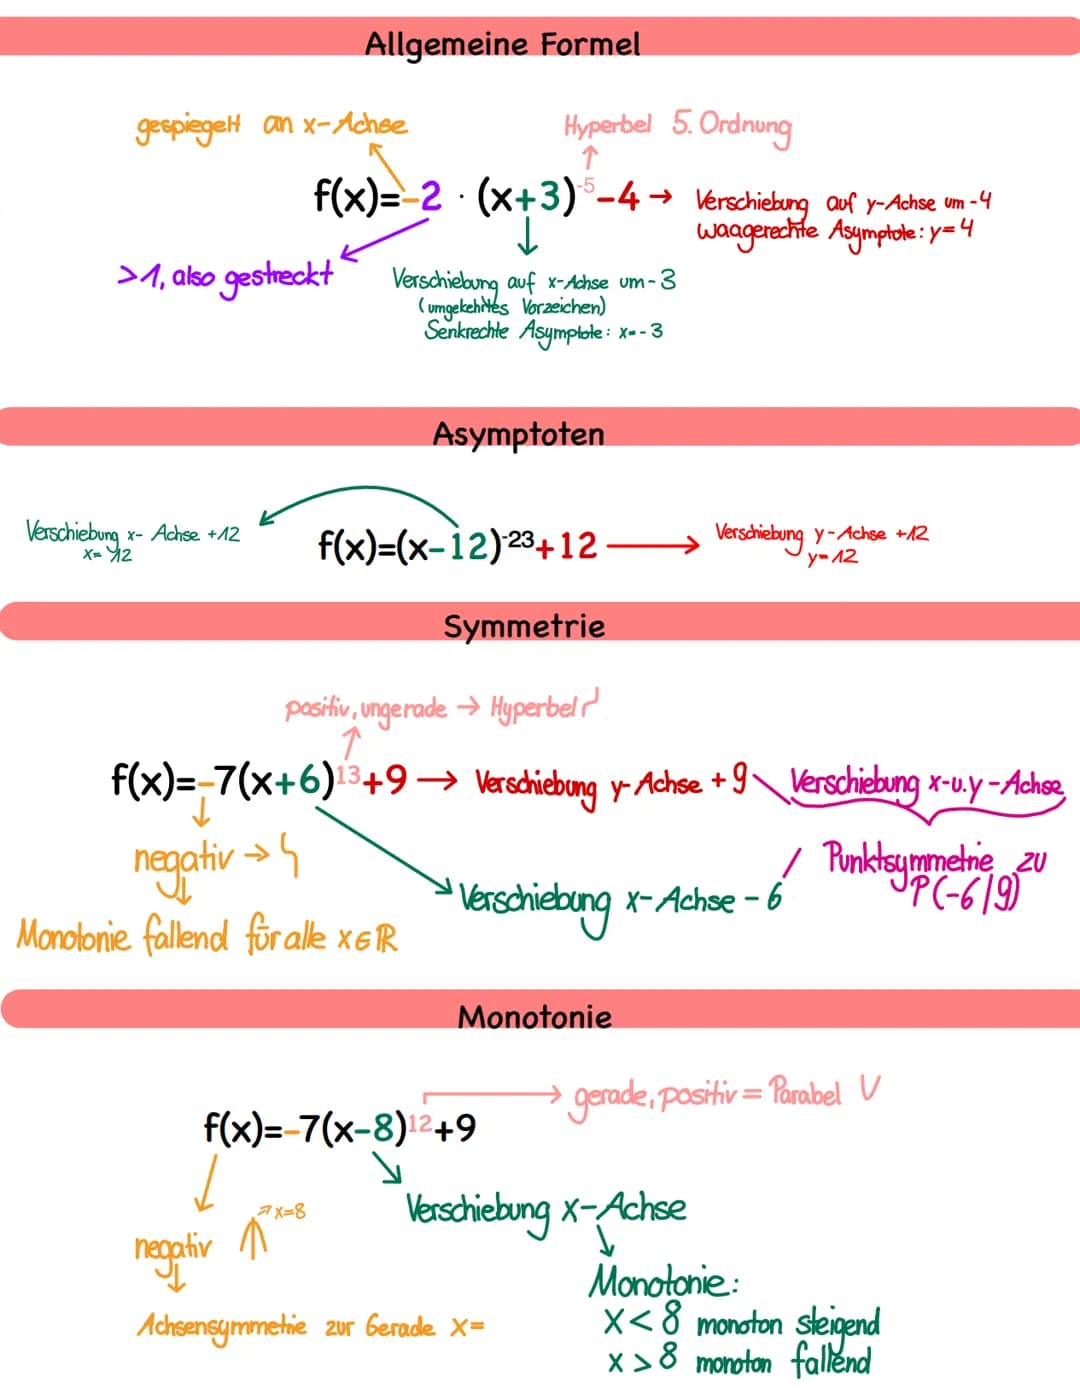 Allgemeine Formel
gespiegelt an x-Achse
Hyperbel 5. Ordnung
f(x)=-2 · (x+3)⁻⁵-4 → Verschiebung auf y-Achse um -4
waagerechte Asymptote: y=4
>1, also gestreckt
Verschiebung auf x-Achse um -3
(umgekehrtes Vorzeichen)
Senkrechte Asymptote: x=-3
Asymptoten
Verschiebung x-Achse +12
x= 12
f(x)=(x-12)⁻²³+12
Verschiebung y-Achse +12
y=12
Symmetrie
positiv, ungerade → Hyperbel
f(x)=-7(x+6)¹³+9 → Verschiebung y-Achse +9
Verschiebung x-u.y-Achse
negativ →
Punktsymmetrie zu
P(-6/9)
Verschiebung x-Achse -6
Monotonie fallend für alle x∈ℝ
Monotonie
gerade, positiv = Parabel
f(x)=-7(x-8)¹²+9
Verschiebung x-Achse
x=8
negativ
Monotonie:
Achsensymmetrie zur Gerade x=
x<8 monoton steigend
x>8 monoton fallend